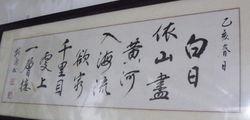 乙亥春日
白日
依山盡
黄河
入海流
欲窮
千里目
更上
一層樓